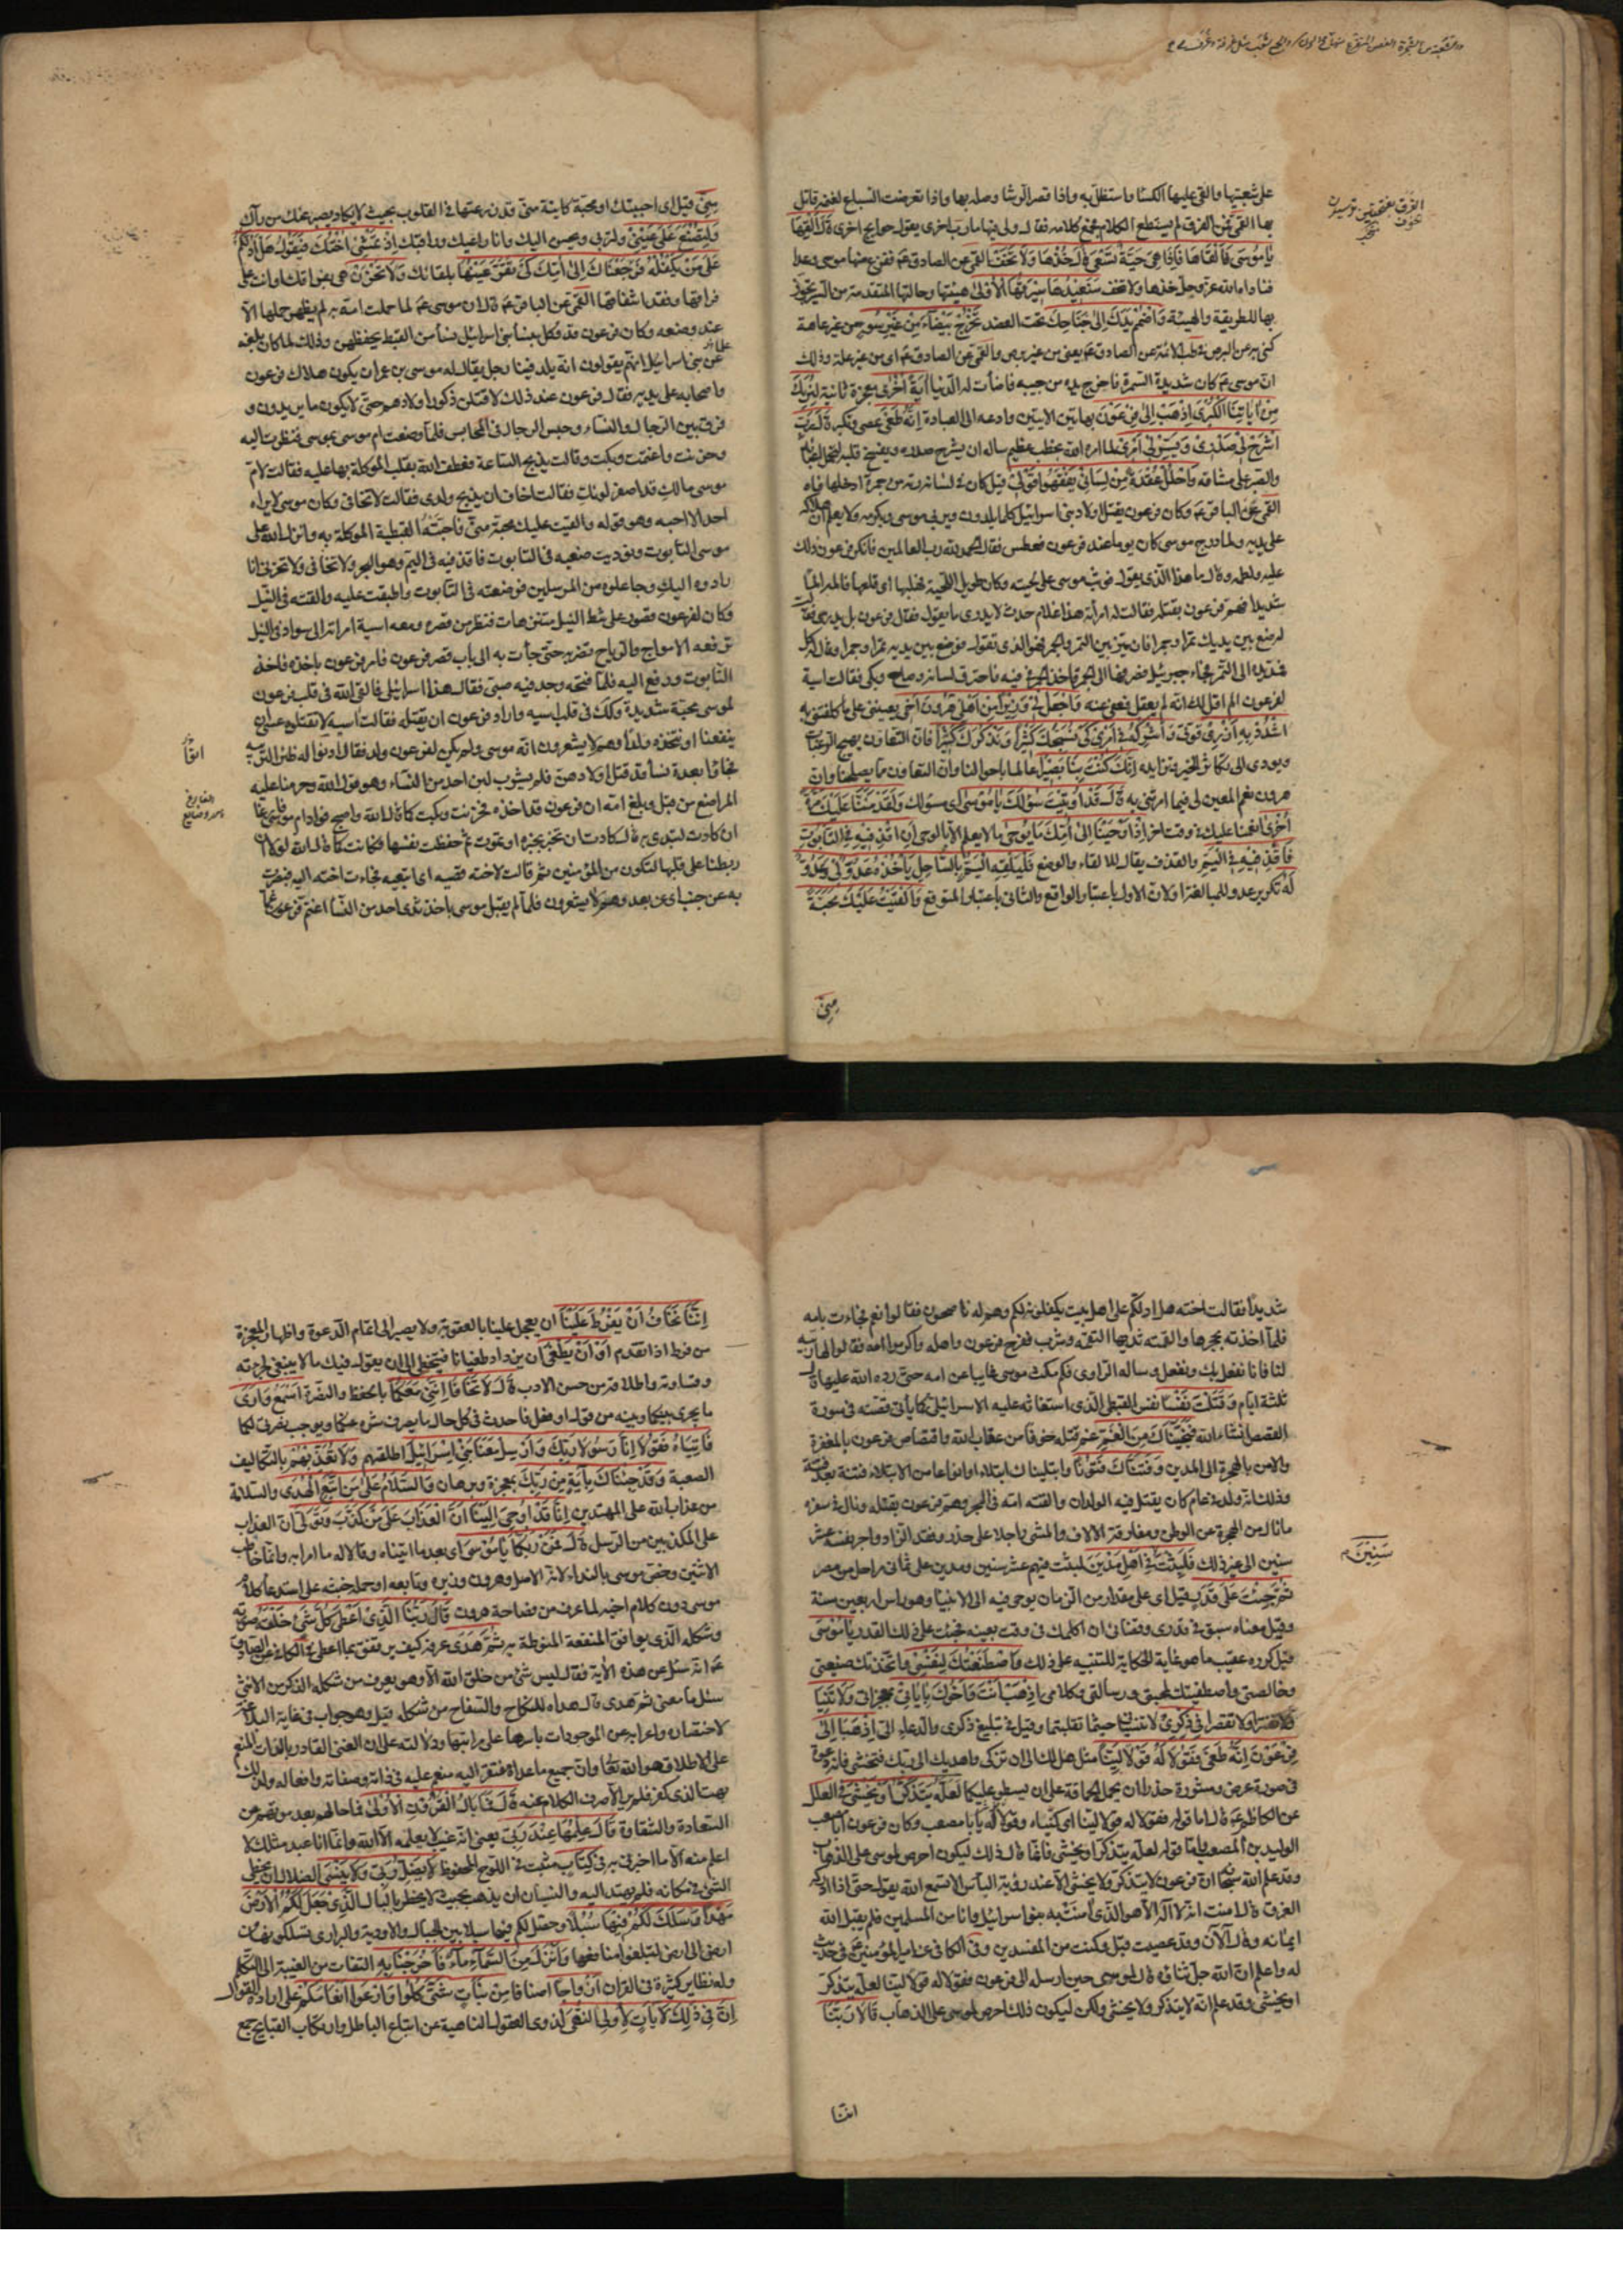 على شعبتيها والقى عليها الكساء واستظل به واذا قصر الرشا وصله بها واذا تعرضت السباع لغنمه قاتل
بها القمي عن الفزق لم يستطع الكلام فجمع كلامه فقال ولي فيها مارب اخرى يقول حوايج اخرى قال القها
يا موسى فالقاها فاذا هي حية تسعى قال خذها ولا تخف القمي عن الصادق ع ففزع منها موسى وعدا
فناداه الله عز وجل خذها ولا تخف سنعيدها سيرتها الاولى هيئتها وحالتها المتقدمة من السير تجوز
بها للطريقة والهيئة واضمم يدك الى جناحك تحت العضد تخرج بيضاء من غير سوء من غير عاهة
كنى به عن البرص وطب الائمة عن الصادق ع يعني من غير برص والقمي عن الصادق ع اي من غير علة وذلك
ان موسى ع كان شديد السمرة فاخرج يده من جيبه فاضأت له الدنيا اية اخرى معجزة ثانية لنريك
من اياتنا الكبرى اذهب الى فرعون بهاتين الايتين وادعه الى العبادة انه طغى عصى وتكبر قال رب
اشرح لي صدري ويسر لي امري لما امره الله بخطب عظيم ساله ان يشرح صدره ويفسح قلبه لتحمل اعبائه
والصبر على مشاقه واحلل عقدة من لساني يفقهوا قولي قيل كان في لسانه رتة من جمرة ادخلها فاه
القمي عن الباقر ع وكان فرعون يقتل اولاد بني اسرائيل كلما يلدون ويربي موسى ويكرمه ولا يعلم ان هلاكه
على يديه ولما درج موسى كان يوما عند فرعون فعطس فقال الحمد لله رب العالمين فانكر فرعون ذلك
عليه ولطمه وقال ما هذا الذي يقول فوثب موسى على لحيته وكان طويل اللحية فهلبها اي قلعها فالمه الما
شديدا فهم فرعون بقتله فقالت له امرأته هذا غلام حدث لا يدري ما يقول فقال فرعون بل يدري فقالت
له ضع بين يديك تمرا وجمرا فان ميز بين التمر والجمر فهو الذي تقول فوضع بين يديه تمرا وجمرا وقال له كل
فمد يده الى التمر فجاء جبرئيل فصرفها الى الجمر فاخذ الجمر في فيه فاحترق لسانه وصاح وبكى فقالت اسية
لفرعون الم اقل لك انه لم يعقل فعفى عنه واجعل لي وزيرا من اهلي هرون اخي يعينني على ما كلفتني به
اشدد به ازري قوتي واشركه في امري كي نسبحك كثيرا ونذكرك كثيرا فان التعاون يهيج الرغبات
ويودي الى تكاثر الخير وتزايده انك كنت بنا بصيرا عالما باحوالنا وان التعاون مما يصلحنا وان
هرون نعم المعين لي فيما امرتني به قال قد اوتيت سؤلك يا موسى اي مسؤلك ولقد مننا عليك مرة
اخرى انعمنا عليك في وقت اخر اذ اوحينا الى امك ما يوحى ما لا يعلم الا بالوحي ان اقذفيه في التابوت
فاقذفيه في اليم والقذف يقال للالقاء والوضع فليلقه اليم بالساحل ياخذه عدو لي وعدو
له تكرير عدو للمبالغة او لان الاول باعتبار الواقع والثاني باعتبار المتوقع والقيت عليك محبة
مني
مني قيل اي احببتك او محبة كاينة مني قد زرعتها في القلوب بحيث لا يكاد يصبر عنك من رآك
ولتصنع على عيني ولتربى ويحسن اليك وانا راعيك وراقبك اذ تمشي اختك فتقول هل ادلكم
على من يكفله فرجعناك الى امك كي تقر عينها بلقائك ولا تحزن هي بفراقك او انت على
فراقها وفقد اشفاقها القمي عن الباقر ع قال ان موسى ع لما حملت امه به لم يظهر حملها الا
عند وضعه وكان فرعون قد وكل بنساء بني اسرائيل نساء من القبط يحفظهن وذلك لما كان بلغه
عن بني اسرائيل انهم يقولون انه يلد فينا رجل يقال له موسى بن عمران يكون هلاك فرعون
واصحابه على يديه فقال فرعون عند ذلك لاقتلن ذكور اولادهم حتى لا يكون ما يريدون و
فرق بين الرجال والنساء وحبس الرجال في المحابس فلما وضعت ام موسى بموسى فنظرت اليه
وحزنت واغتمت وبكت وقالت يذبح الساعة فعطف الله بقلب الموكلة بها عليه فقالت لام
موسى مالك قد اصفر لونك فقالت اخاف ان يذبح ولدي فقالت لا تخافي وكان موسى لا يراه
احد الا احبه وهو قوله والقيت عليك محبة مني فاحبته القبطية الموكلة به وانزل الله على
موسى التابوت ونوديت ضعيه في التابوت فاقذفيه في اليم وهو البحر ولا تخافي ولا تحزني انا
رادوه اليك وجاعلوه من المرسلين فوضعته في التابوت واطبقت عليه والقته في النيل
وكان لفرعون قصور على شط النيل متنزهات فنظر من قصره ومعه اسية امراته الى سواد في النيل
ترفعه الامواج والرياح تضربه حتى جأت به الى باب قصر فرعون فامر فرعون باخذه فاخذ
التابوت ودفع اليه فلما فتحه وجد فيه صبي فقال هذا اسرائيلي فالقى الله في قلب فرعون
لموسى محبة شديدة وكذلك في قلب اسيه واراد فرعون ان يقتله فقالت اسيه لا تقتلوه عسى ان
ينفعنا او نتخذه ولدا وهم لا يشعرون انه موسى ولم يكن لفرعون ولد فقال ادنوا له ظئرا لتربيه
فجاؤا بعدة نساء قد قتل اولادهن فلم يشرب لبن احد من النساء وهو قول الله وحرمنا عليه
المراضع من قبل وبلغ امه ان فرعون قد اخذه فحزنت وبكت كما قال الله واصبح فواد ام موسى فارغا
ان كادت لتبدي به قال كادت ان تخبر بخبره او تموت ثم حفظت نفسها فكانت كما قال الله لولا ان
ربطنا على قلبها لتكون من المؤمنين ثم قالت لاخته قصيه اي اتبعيه فجاءت اخته اليه فبصرت
به عن جنب اي عن بعد وهم لا يشعرون فلما لم يقبل موسى باخذ ثدي احد من النساء اغتم فرعون غما
شديدا فقالت اخته هل ادلكم على اهل بيت يكفلونه لكم وهم له ناصحون فقالوا نعم فجاءت بامه
فلما اخذته بحجرها والقمته ثديها التقمه وشرب ففرح فرعون واهله واكرموا امه فقالوا لها ربيه
لنا فانا نفعل بك ونفعل وساله الراوي فكم مكث موسى غايبا عن امه حتى رده الله عليها قال
ثلثة ايام وقتلت نفسا نفس القبطي الذي استغاثه عليه الاسرائيلي كما يأتي قصته في سورة
القصص انشاء الله فنجيناك من الغم غم قتله خوفا من عقاب الله واقتصاص فرعون بالمغفرة
والامن بالهجرة الى المدين وفتناك فتونا وابتليناك ابتلاء او انواعا من الابتلاء فتنة بعد فتنة
وذلك انه ولد في عام كان يقتل فيه الولدان والقته امه في البحر وهم فرعون بقتله ونال في سفره
ما نال من الهجرة عن الوطن ومفارقة الالاف والمشي راجلا على حذر وفقد الزاد واجر نفسه عشر
سنين الى غير ذلك فلبثت في اهل مدين لبثت فيهم عشر سنين ومدين على ثماني مراحل من مصر
سنين
ثم جئت على قدر قيل اي على مقدار من الزمان يوحى فيه الى الانبيا وهو راس اربعين سنة
وقيل معناه سبق في قدري وقضائي ان اكلمك في وقت بعينه فجئت على ذلك القدر يا موسى
قيل كرره عقيب ما هو غاية الحكاية للتنبيه على ذلك واصطنعتك لنفسي واتخذتك صنيعتي
وخالصتي واصطفيتك لمحبتي ورسالتي وكلامي اذهب انت واخوك باياتي بمعجزاتي ولا تنيا
ولا تقصرا في ذكري لا تنسياني حيثما تقلبتما وقيل في تبليغ ذكري والدعاء الي اذهبا الى
فرعون انه طغى فقولا له قولا لينا مثل هل لك الى ان تزكى واهديك الى ربك فتخشى فانه دعوة
في صورة عرض ومشورة حذرا ان يحمل الحماقة على ان يسطو عليكما لعله يتذكر او يخشى في العلل
عن الكاظم ع قال اما قوله فقولا له قولا لينا اي كنياه وقولا له يا با مصعب وكان فرعون ابا مصعب
الوليد بن المصعب واما قوله لعله يتذكر او يخشى فانما قال ذلك ليكون احرص لموسى على الذهاب
وقد علم الله سبحانه ان فرعون لا يتذكر ولا يخشى الا عند رؤية البأس الا تسمع الله يقول حتى اذا ادركه
الغرق قال امنت انه لا اله الا هو الذي امنت به بنوا اسرائيل وانا من المسلمين فلم يقبل الله
ايمانه وقال آلآن وقد عصيت قبل وكنت من المفسدين وفي الكافي عن امير المؤمنين ع في حديث
له واعلم ان الله جل ثناؤه قال لموسى حين ارسله الى فرعون فقولا له قولا لينا لعله يتذكر
او يخشى وقد علم انه لا يتذكر ولا يخشى ولكن ليكون ذلك احرص لموسى على الذهاب قالا ربنا
اننا
اننا نخاف ان يفرط علينا ان يعجل علينا بالعقوبة ولا يصبر الى اتمام الدعوة واظهار المعجزة
من فرط اذا تقدم او ان يطغى ان يزداد طغيانا فيتخطى الى ان يقول فيك ما لا ينبغي لجرءته
وقساوته واطلاقه من حسن الادب قال لا تخافا انني معكما بالحفظ والنصرة اسمع وارى
ما يجري بينكما وبينه من قول او فعل فاحدث في كل حال ما يصرف شره عنكما ويوجب نصرتي لكما
فاتياه فقولا انا رسولا ربك وارسل معنا بني اسرائيل اطلقهم ولا تعذبهم بالتكاليف
الصعبة وقد جئناك باية من ربك بمعجزة وبرهان والسلام على من اتبع الهدى والسلامة
من عذاب الله على المهتدين انا قد اوحي الينا ان العذاب على من كذب وتولى ان العذاب
على المكذبين من الرسل قال فمن ربكما يا موسى اي بعد ما اتيناه وقالا له ما امرا به وانما خاطب
الاثنين وخص موسى بالنداء لانه الاصل وهرون وزيره وتابعه او حمله خبثه على استدعاء كلام
موسى دون كلام اخيه لما عرف من فصاحة هرون قال ربنا الذي اعطى كل شيء خلقه صورته
وشكله الذي يوافق المنفعة المنوطة به ثم هدى عرفه كيف يرتفق بما اعطي في الكافي عن الصادق
ع انه سئل عن هذه الاية فقال ليس شيء من خلق الله الا وهو يعرف من شكله الذكر من الانثى
سئل ما معنى ثم هدى قال هداه للنكاح والسفاح من شكله قيل وهو جواب في غاية البلاغة
لاختصاره واعرابه عن الموجودات باسرها على مراتبها ودلالته على ان الغني القادر بالذات المنعم
على الاطلاق هو الله تعالى وان جميع ما عداه مفتقر اليه منعم عليه في ذاته وصفاته وافعاله ولذلك
بهت الذي كفر فلم ير الا صرف الكلام عنه قال فما بال القرون الاولى فما حالهم بعد موتهم من
السعادة والشقاوة قال علمها عند ربي يعني انه غيب لا يعلمه الا الله وانما انا عبد مثلك لا
اعلم منه الا ما اخبرني به في كتاب مثبت في اللوح المحفوظ لا يضل ربي ولا ينسى الضلال ان يخطي
الشيء في مكانه فلم يهتد اليه والنسيان ان يذهب بحيث لا يخطر بالبال الذي جعل لكم الارض
مهدا وسلك لكم فيها سبلا وحصل لكم فيها سبلا بين الجبال والاودية والبراري تسلكونها من
ارض الى ارض لتبلغوا منافعها وانزل من السماء ماء فاخرجنا به التفات من الغيبة الى التكلم
وله نظاير كثيرة في القران ازواجا اصنافا من نبات شتى كلوا وارعوا انعامكم على ارادة القول
ان في ذلك لايات لاولي النهى لذوي العقول الناهية عن اتباع الباطل وارتكاب القبايح جمع